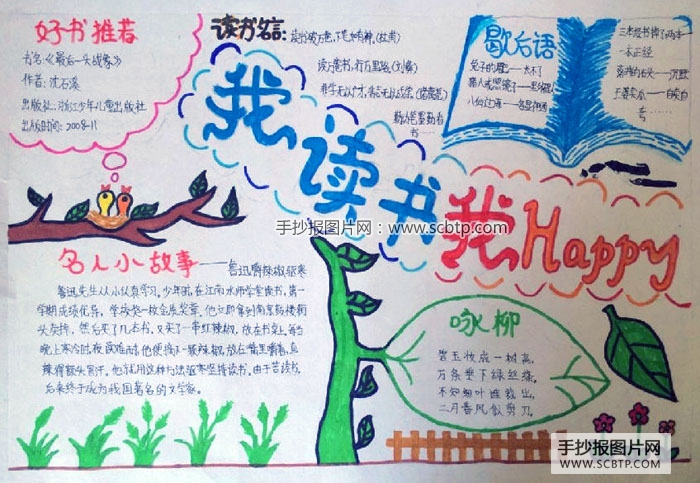 好书推荐
书名:《最后一头战象》
作者:沈石溪
出版社:浙江少年儿童出版社
出版时间:2008-11
读书名言:
读万卷书,行万里路。(刘彝)
歇后语
三本经书掉了两本
一本正经
我读书我Happy
手抄报图片网:www.scbtp.com
名人小故事——鲁迅嚼辣椒驱寒
鲁迅先生从小认真学习。少年时,在江南水师学堂读书,第一
学期成绩优异,学校奖一枚金质奖章。他立即拿到南京鼓楼街
头卖掉,然后买了几本书,又买了一串红辣椒,放在书桌,每当
晚上寒冷时,夜读难耐,他便摘下一颗辣椒,放在嘴里嚼着,直
辣得额头冒汗。他就用这种方法驱寒坚持读书。由于苦读书,
后来终于成为我国著名的文学家。
咏柳
碧玉妆成一树高,
万条垂下绿丝绦。
不知细叶谁裁出,
二月春风似剪刀。
手抄报图片网
WWW.SCBTP.COM